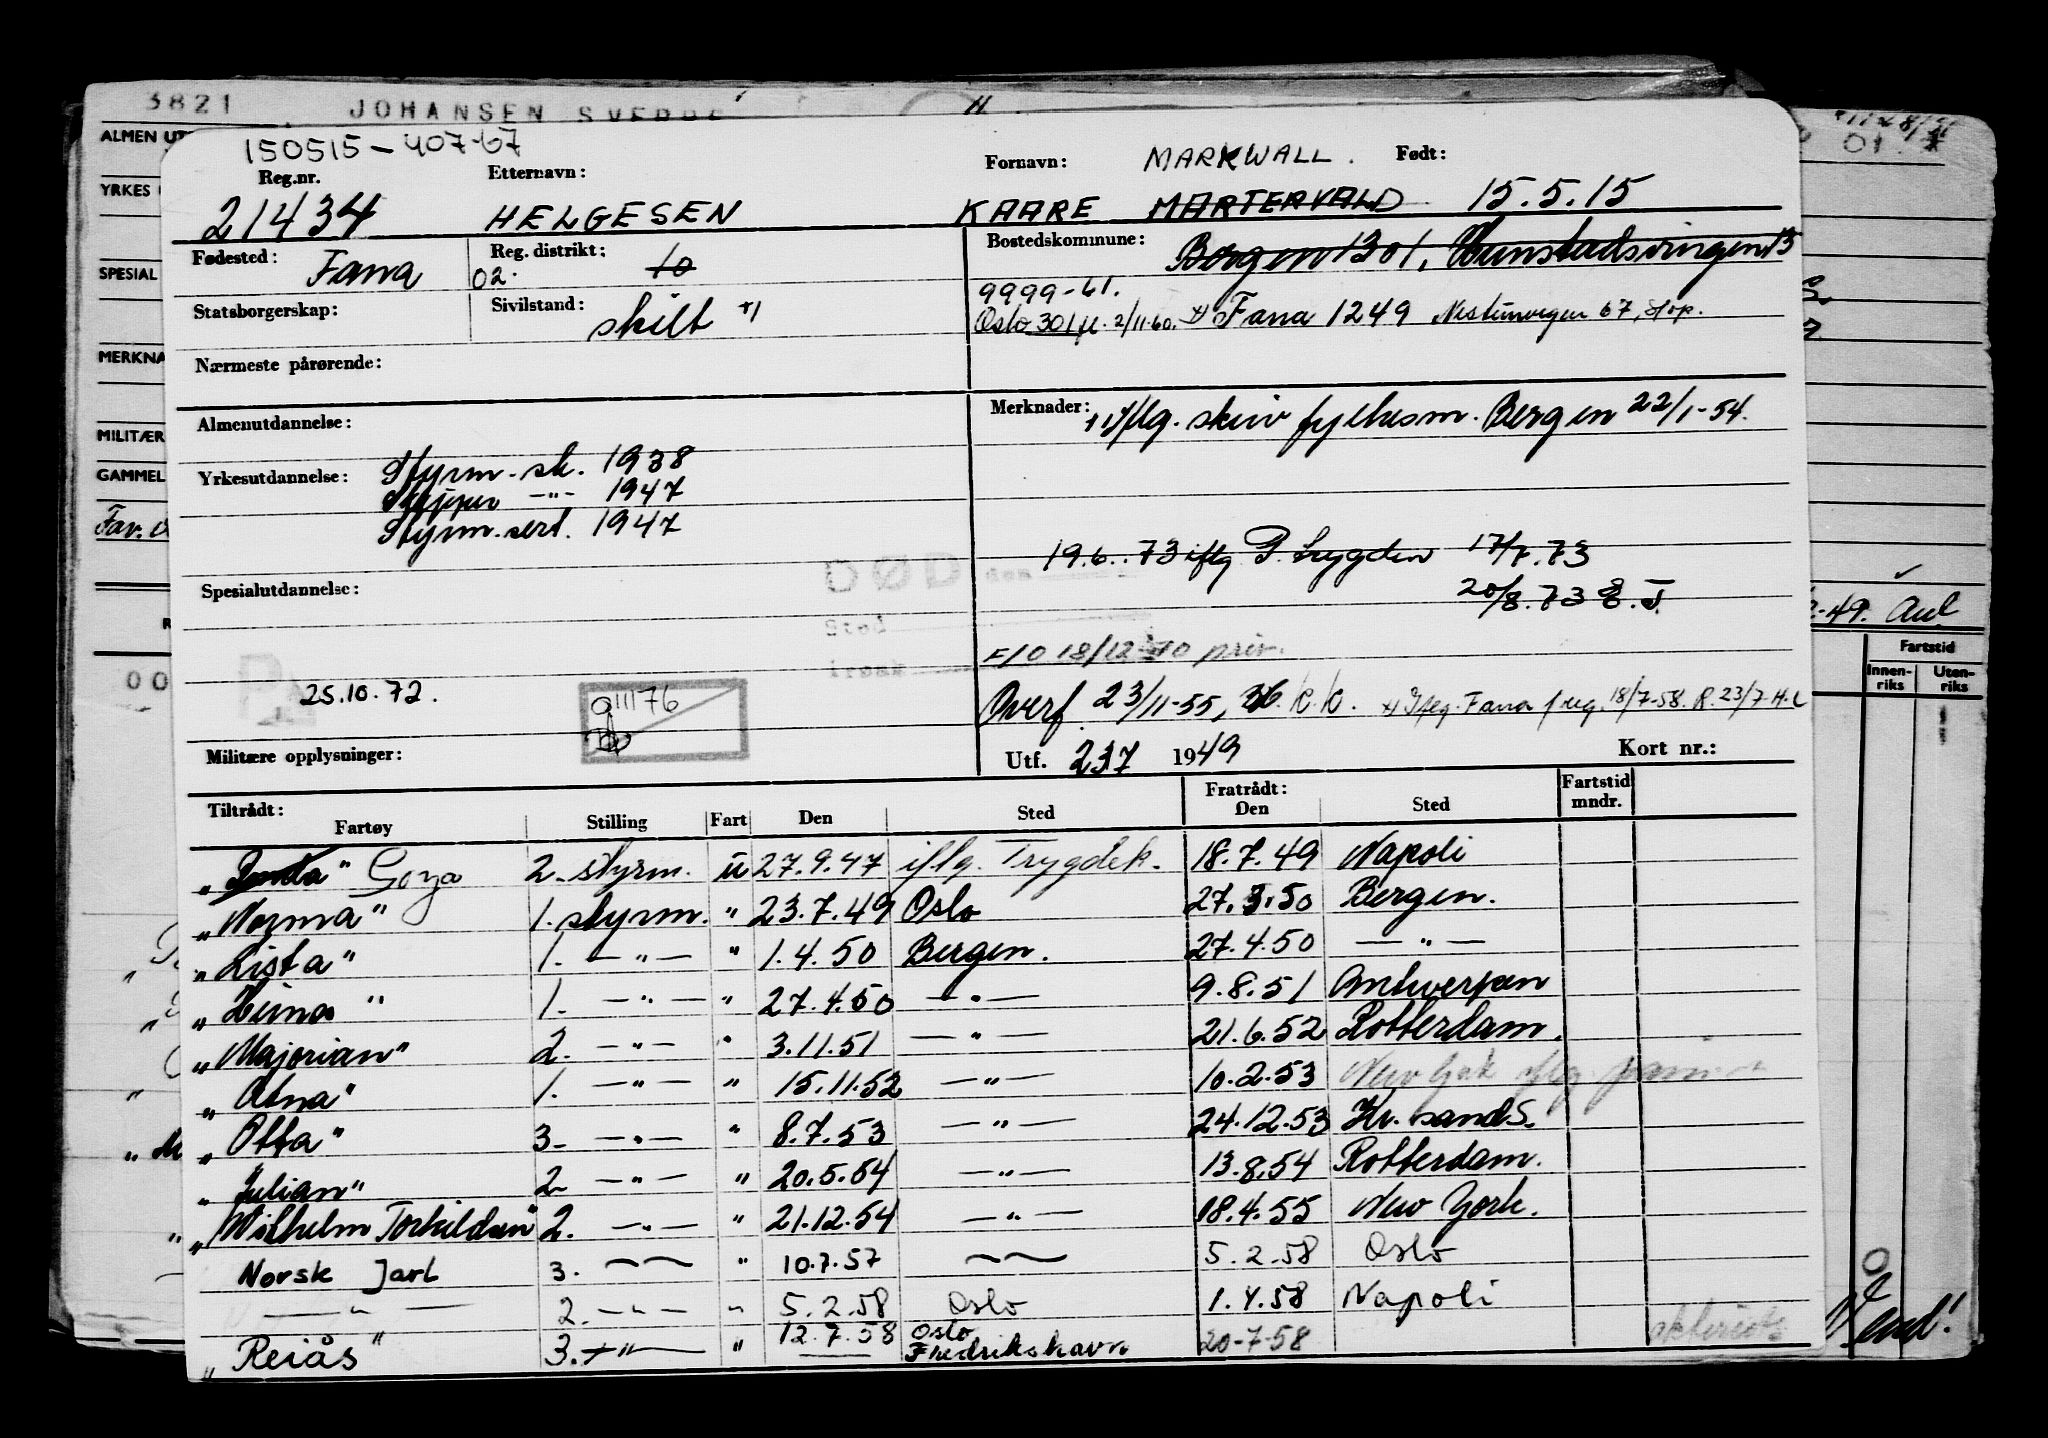 3821 JOHANSEN
150515-407-67
Reg.nr. Etternavn: Fornavn: MARKWALL. Født:
21434 HELGESEN KAARE MARTERVALD 15.5.15
Fødested: Fana Reg. distrikt: 02. 10 Bostedskommune: Bergen 1301,
9999-61.
Statsborgerskap: Sivilstand: skilt x) Oslo 301 fl. 2/11-60. x) Fana 1249
Nærmeste pårørende:
Almenutdannelse: Merknader: x) Iflg. skriv fylkesm. Bergen 22/1-54.
Yrkesutdannelse: Styrm. sk. 1938
Skipper -"- 1947
Styrm. sert. 1947
19.6.73 iflg 17/7.73
Spesialutdannelse:
20/8.73
DØD den
F10 18/12 priv.
25.10.72.
Overf 23/11-55, x) Iflg. Fana f.reg. 18/7-58. R. 23/7
Militære opplysninger: Utf. 237 1949 Kort nr.:
Tiltrådt: Fratrådt: Fartstid
Fartøy Stilling Fart Den Sted Den Sted mndr.
" " Gorza 2. styrm. u 27.9.47 iflg. Trygdek. 18.7.49 Napoli
"Norma" 1. styrm. " 23.7.49 Oslo 27.3.50 Bergen.
"Lista" 1. -"- " 1.4.50 Bergen. 27.4.50 -"-
" " 1. -"- " 27.4.50 -"- 9.8.51 Antwerpen
"Majorian" 2. -"- " 3.11.51 -"- 21.6.52 Rotterdam.
"Atna" 1. -"- " 15.11.52 -"- 10.2.53 New York iflg.
"Otta" 3. -"- " 8.7.53 -"- 24.12.53 Kr. sand S.
"Julian" 2. -"- " 20.5.54 -"- 13.8.54 Rotterdam.
"Wilhelm Torkildsen" 2. -"- " 21.12.54 -"- 18.4.55 New York.
Norsk Jarl 3. " 10.7.57 5.2.58 Oslo
-"- 2. -"- " 5.2.58 Oslo 1.4.58 Napoli
"Reiås" 3. -"- " 12.7.58 Oslo
Fredrikshavn 20-7-58
ALMEN
YRKES
SPESIAL
MERKNA
MILITÆR
GAMMEL
Fartstid
Innen-
riks
Uten-
riks
Vend!